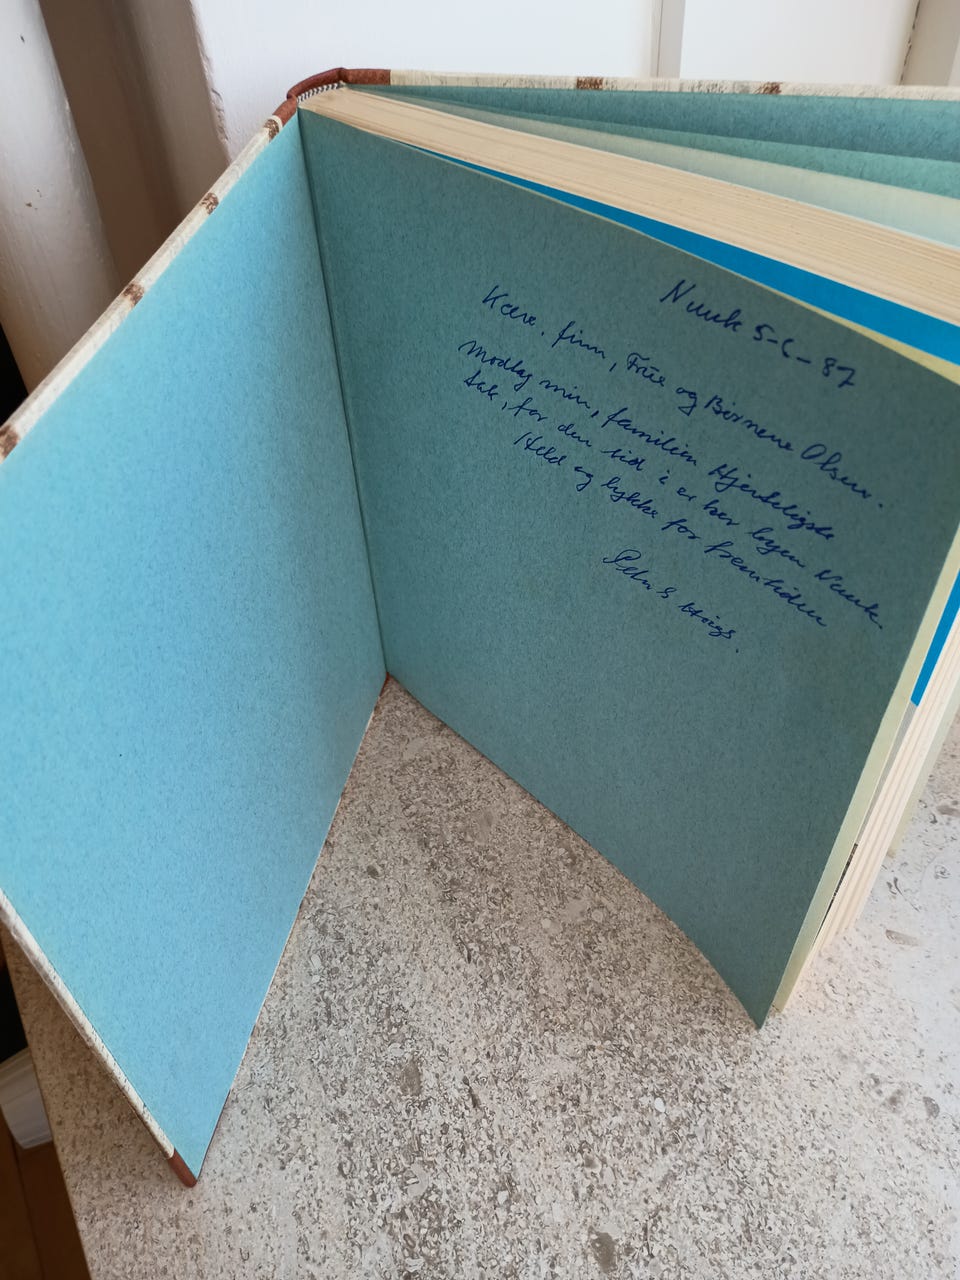 Nuuk 5-6-87
Kære. finn, Frue og Børnene Olsen.
Modtag min, familien Hjerteligste
tak, for den tid i er her byen Nuuk.
Held og lykke for fremtiden